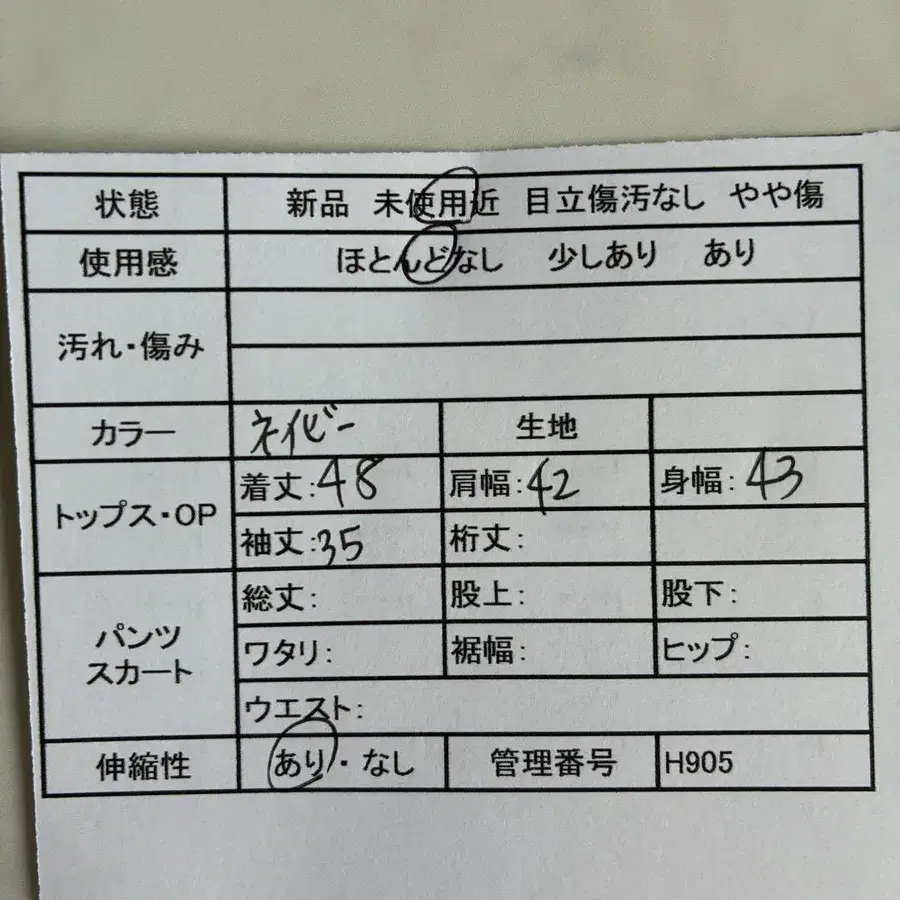 状態 新品 未使用近 目立傷汚なし やや傷
使用感 ほとんどなし 少しあり あり
汚れ・傷み
カラー ネイビー 生地
トップス・OP 着丈:48 肩幅:42 身幅:43
袖丈:35 裄丈:
パンツ
スカート
総丈: 股上: 股下:
ワタリ: 裾幅: ヒップ:
ウエスト:
伸縮性 あり・なし 管理番号 H905